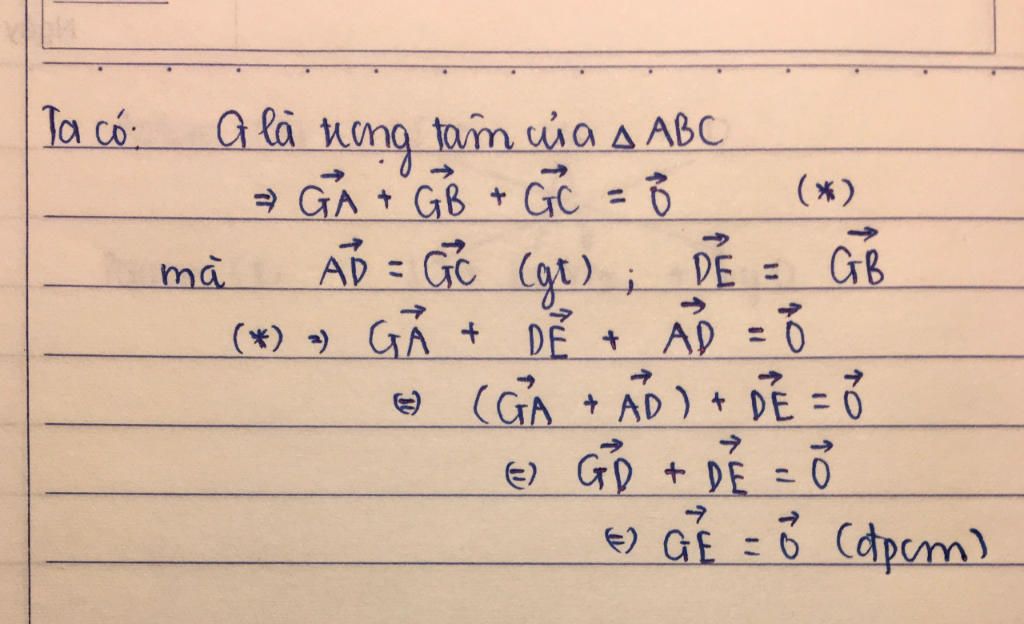 Ta có: G là trọng tâm của △ ABC
⇒ GA⃗ + GB⃗ + GC⃗ = 0⃗ (*)
mà AD⃗ = GC⃗ (gt) ; DE⃗ = GB⃗
(*) ⇒ GA⃗ + DE⃗ + AD⃗ = 0⃗
⇔ (GA⃗ + AD⃗) + DE⃗ = 0⃗
⇔ GD⃗ + DE⃗ = 0⃗
⇔ GE⃗ = 0⃗ (đpcm)